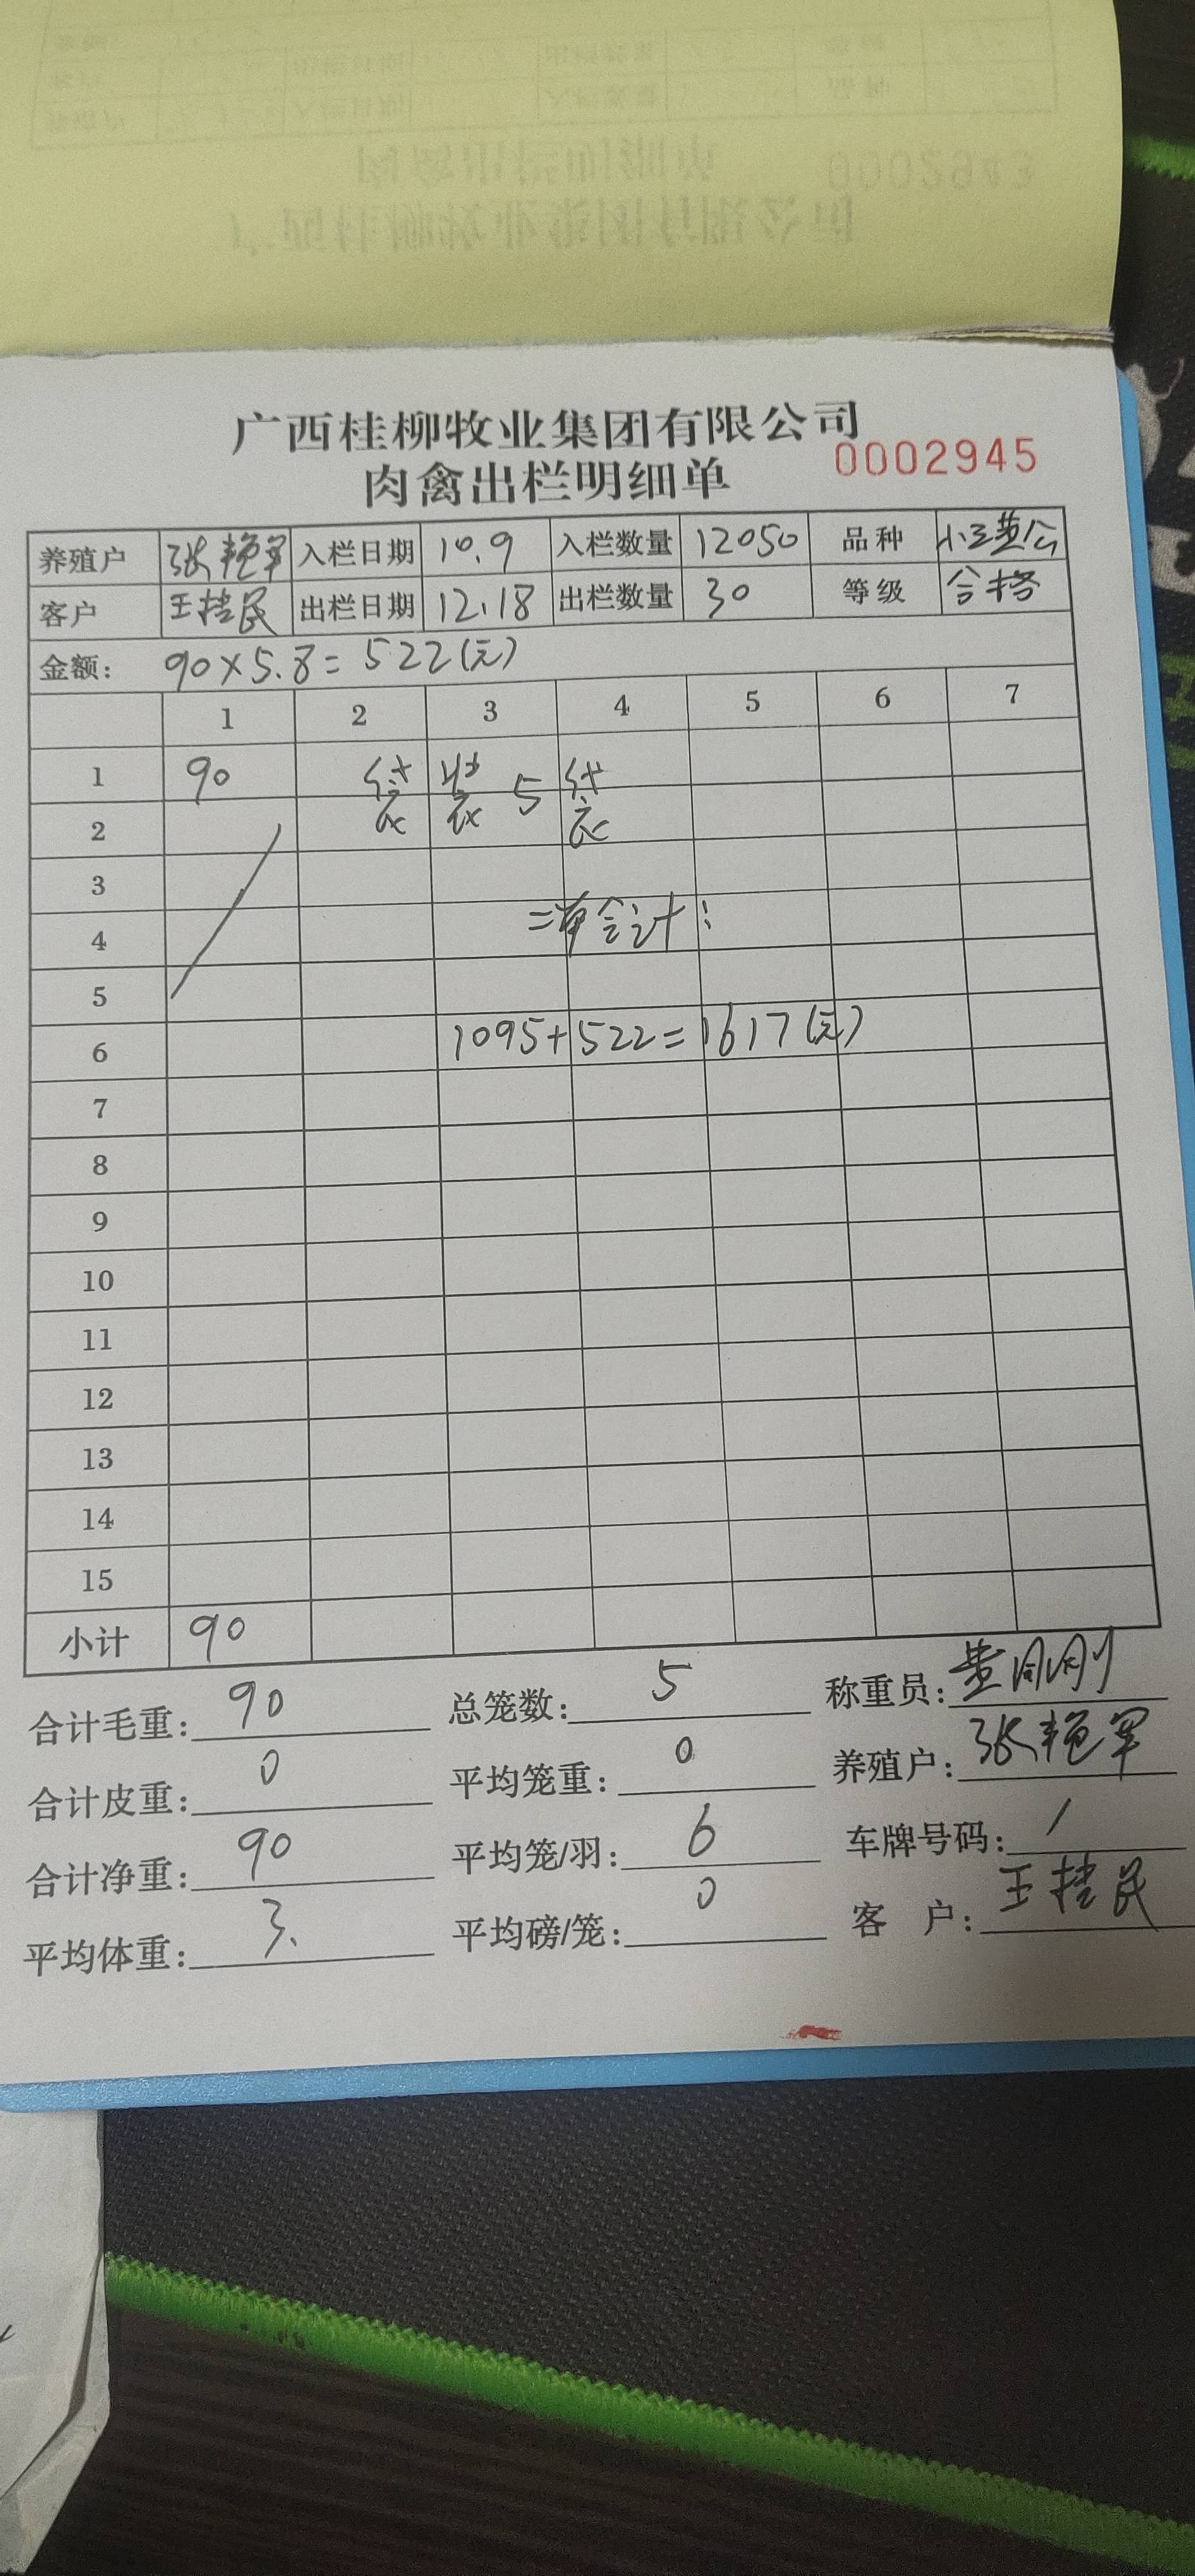 0002943
广西桂柳牧业集团有限公司
肉禽出栏明细单
0002945
养殖户 张艳军 入栏日期 10.9 入栏数量 12050 品种 小三黄公
客户 王桂民 出栏日期 12.18 出栏数量 30 等级 合格
金额: 90×5.8=522(元)
1 2 3 4 5 6 7
1 90
5
2
3
4
二单合计:
5
6 1095+522=1617(元)
7
8
9
10
11
12
13
14
15
小计 90
合计毛重: 90 总笼数: 5 称重员: 黄刚刚
合计皮重: 0 平均笼重: 0 养殖户: 张艳军
合计净重: 90 平均笼/羽: 6 车牌号码: /
平均体重: 3. 平均磅/笼: 0 客户: 王桂民